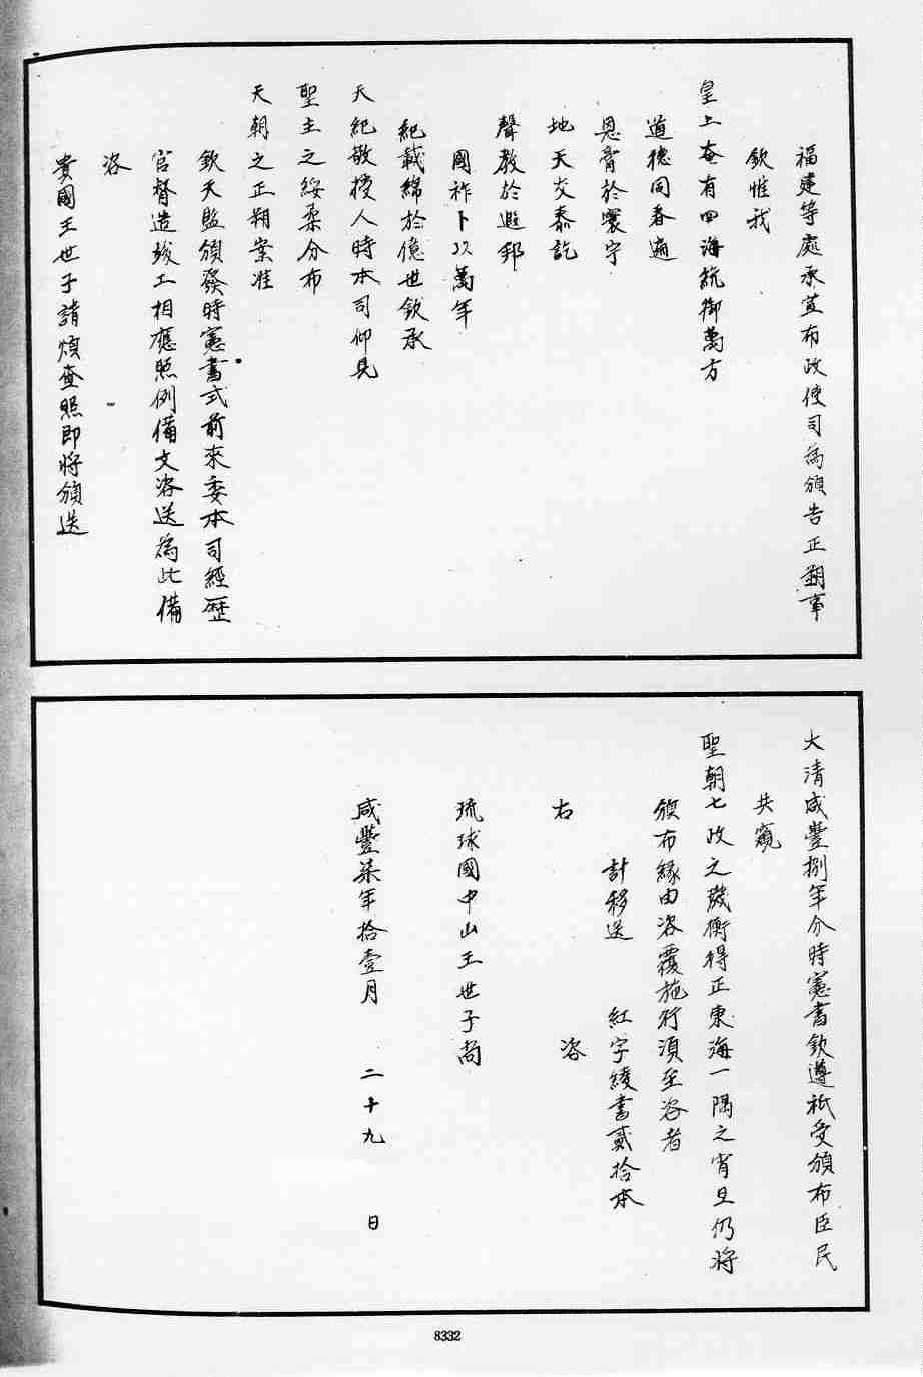 福建等處承宣布政使司為頒告正朔事
欽惟我
皇上奄有四海統御萬方
道德同春遍
恩膏於寰宇
地天交泰訖
聲教於遐邦
國祚卜以萬年
紀載綿於億世欽承
天紀敬授人時本司仰見
聖主之綏柔分布
天朝之正朔案准
欽天監頒發時憲書式前來委本司經歷
官督造竣工相應照例備文咨送為此備
咨
貴國王世子請煩查照即將頒送
大清咸豐捌年分時憲書欽遵祇受頒布臣民
共窺
聖朝七政之璣衡得正東海一隅之宵旦仍將
頒布緣由咨覆施行須至咨者
計移送 紅字綾書貳拾本
右 咨
琉球國中山王世子尚
咸豐柒年拾壹月 二十九 日
8332